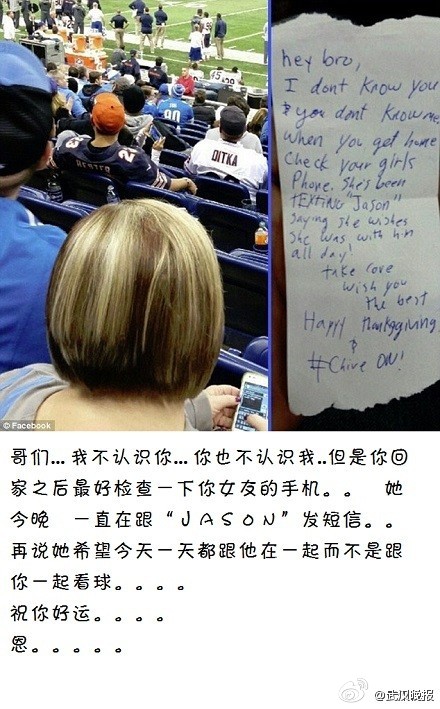 HESTER
23
DITKA
45
20
© Facebook
hey bro,
I dont know you
& you dont know me,
when you get home
check your girls
Phone. She's been
TEXTING "Jason"
saying she wishes
she was with him
all day!
take care
wish you
the best
Happy thanksgiving
&
#Chive ON!
哥们...我不认识你...你也不认识我..但是你回
家之后最好检查一下你女友的手机。。 她
今晚 一直在跟“JASON”发短信。。
再说她希望今天一天都跟他在一起而不是跟
你一起看球。。。。
祝你好运。。。。
恩。。。。。
@武汉晚报